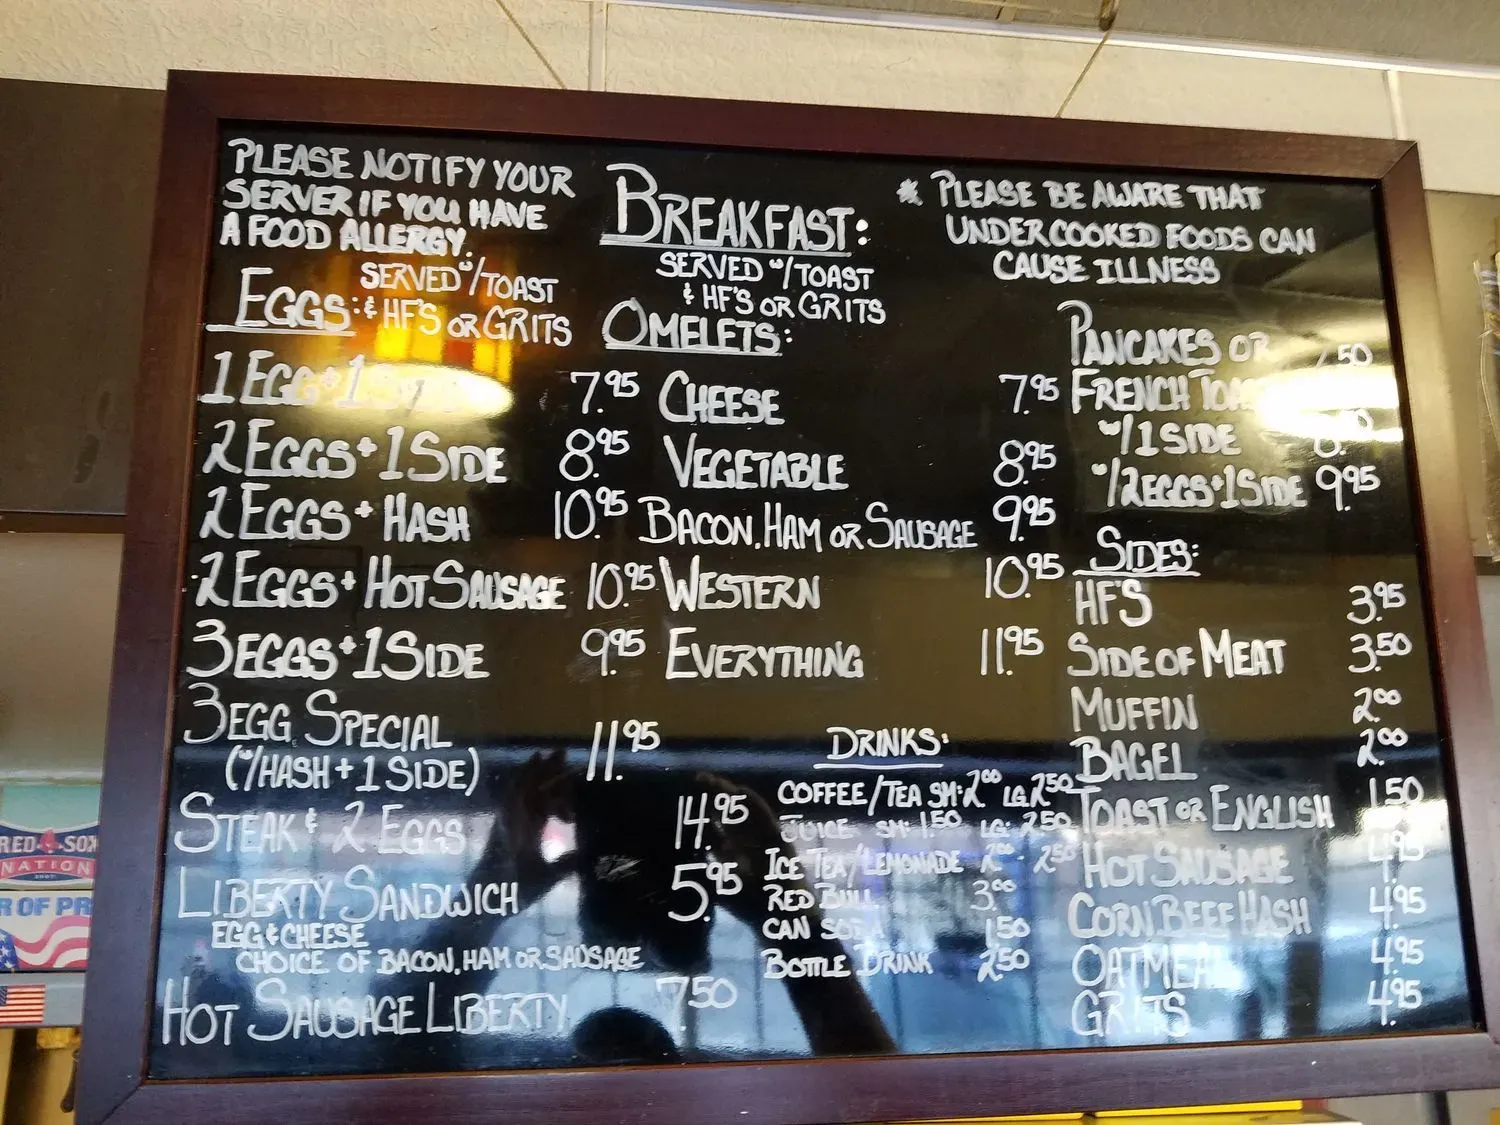 PLEASE NOTIFY YOUR
SERVER IF YOU HAVE
A FOOD ALLERGY.
EGGS: SERVED W/TOAST
& HF'S OR GRITS
1 EGG + 1 SIDE 7.95
2 EGGS + 1 SIDE 8.95
2 EGGS + HASH 10.95
2 EGGS + HOT SAUSAGE 10.95
3 EGGS + 1 SIDE 9.95
3 EGG SPECIAL 11.95
(W/HASH + 1 SIDE)
STEAK & 2 EGGS 14.95
LIBERTY SANDWICH 5.95
EGG & CHEESE
CHOICE OF BACON, HAM OR SAUSAGE
HOT SAUSAGE LIBERTY 7.50
BREAKFAST:
SERVED W/TOAST
& HF'S OR GRITS
OMELETS:
CHEESE 7.95
VEGETABLE 8.95
BACON, HAM OR SAUSAGE 9.95
WESTERN 10.95
EVERYTHING 11.95
DRINKS:
COFFEE/TEA SM: 2.00 LG 2.50
JUICE SM: 1.50 LG: 2.50
ICE TEA/LEMONADE 2.00 - 2.50
RED BULL 3.00
CAN SODA 1.50
BOTTLE DRINK 2.50
* PLEASE BE AWARE THAT
UNDERCOOKED FOODS CAN
CAUSE ILLNESS
PANCAKES OR 7.50
FRENCH TOAST
W/1 SIDE
W/2 EGGS + 1 SIDE 9.95
SIDES:
HF'S 3.95
SIDE OF MEAT 3.50
MUFFIN 2.00
BAGEL 2.00
TOAST OR ENGLISH 1.50
HOT SAUSAGE 4.95
CORN BEEF HASH 4.95
OATMEAL 4.95
GRITS 4.95
RED SOX
NATION
R OF PR